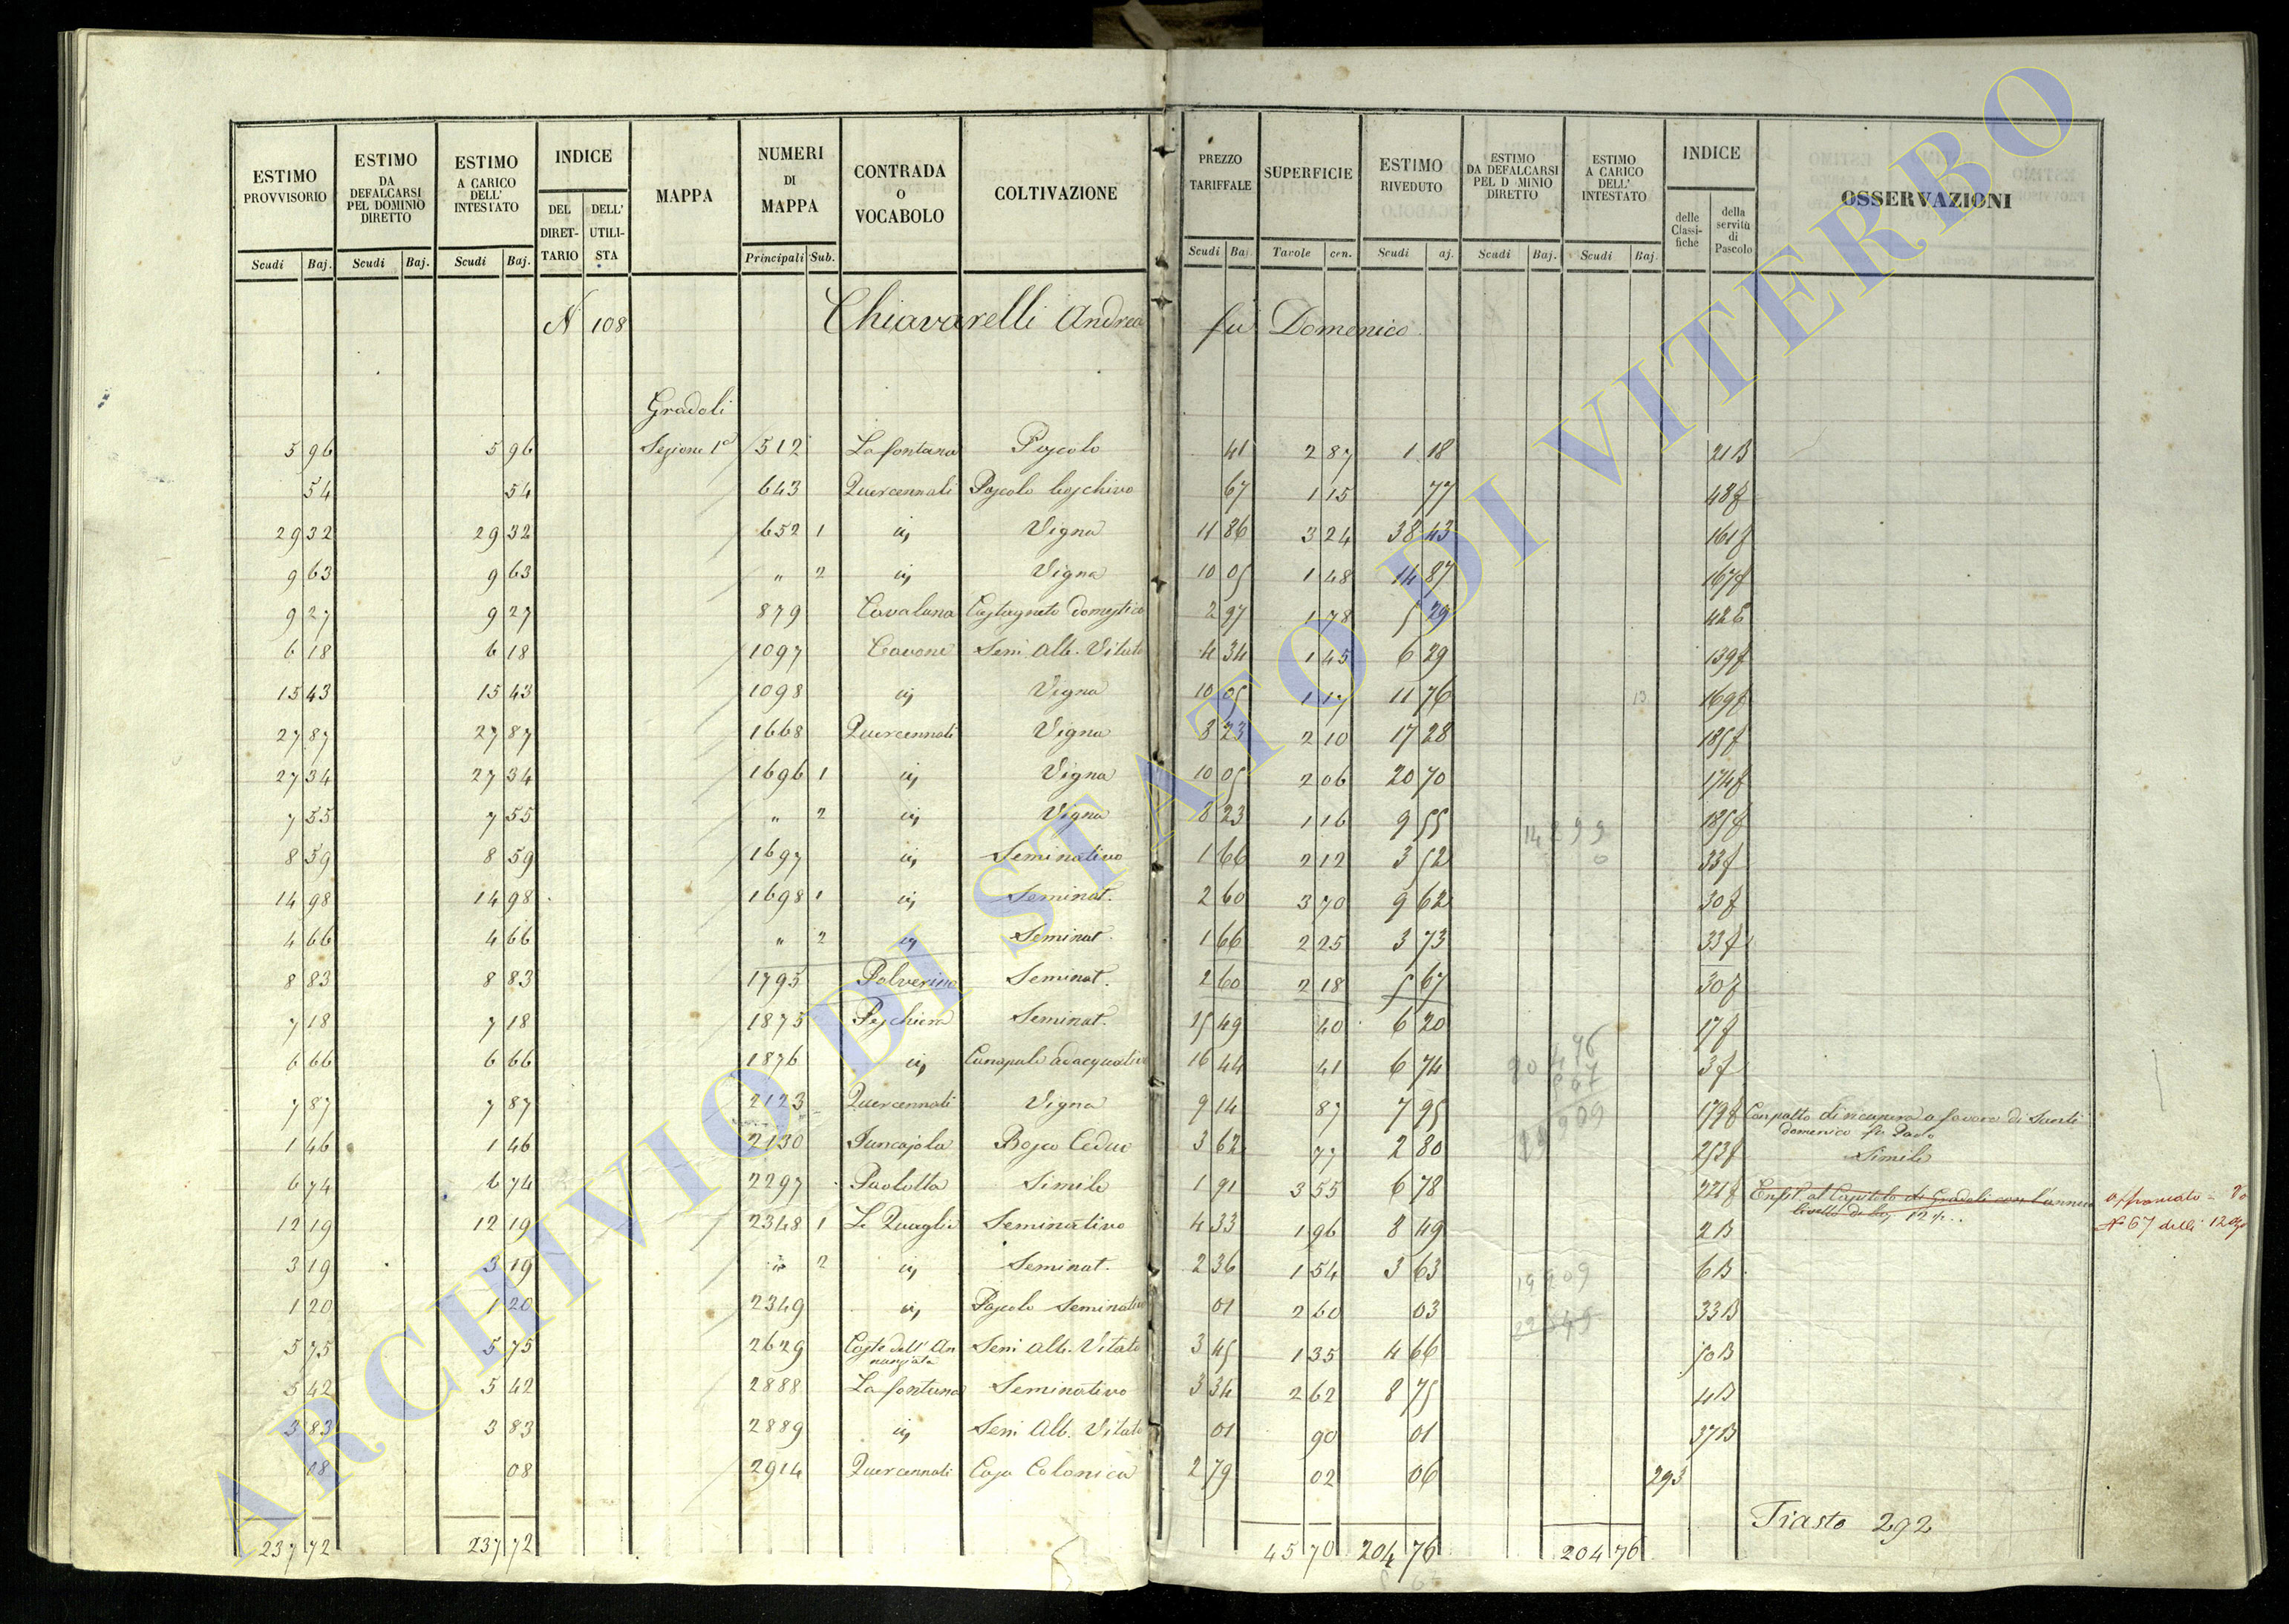 ESTIMO PROVVISORIO | ESTIMO DA DEFALCARSI PEL DOMINIO DIRETTO | ESTIMO A CARICO DELL' INTESTATO | INDICE DEL DIRETTARIO | DELL' UTILISTA | MAPPA | NUMERI DI MAPPA | CONTRADA O VOCABOLO | COLTIVAZIONE | PREZZO TARIFFALE | SUPERFICIE | ESTIMO RIVEDUTO | ESTIMO DA DEFALCARSI PEL D MINIO DIRETTO | ESTIMO A CARICO DELL' INTESTATO | INDICE delle Classifiche | della servitù di Pascolo | OSSERVAZIONI
Scudi Baj. | Scudi Baj. | Scudi Baj. | Principali Sub. | Scudi Ba | Tavole cen. | Scudi aj. | Scudi Baj. | Scudi Baj.
N 108 Chiavarelli Andrea fu Domenico
Gradoli
5 96 | 5 96 | Sezione 1a | 512 | La fontana | Pascolo | 41 | 2 87 | 1 18 | 21 B
54 | 54 | 643 | Quercennali | Pascolo boschivo | 67 | 1 15 | 77 | 48 f
29 32 | 29 32 | 652 1 | in | Vigna | 11 86 | 3 24 | 38 43 | 161 f
9 63 | 9 63 | " 2 | in | Vigna | 10 05 | 1 48 | 14 87 | 167 f
9 27 | 9 27 | 879 | Cavaluna | Castagneto domestico | 2 97 | 1 78 | 5 29 | 42 E
6 18 | 6 18 | 1097 | Cavone | Sem Alb. Vitato | 4 34 | 1 45 | 6 29 | 139 f
15 43 | 15 43 | 1098 | in | Vigna | 10 05 | 1 17 | 11 76 | 13 | 169 f
27 87 | 27 87 | 1668 | Quercennali | Vigna | 8 23 | 2 10 | 17 28 | 185 f
27 34 | 27 34 | 1696 1 | in | Vigna | 10 05 | 2 06 | 20 70 | 174 f
7 55 | 7 55 | " 2 | in | Vigna | 8 23 | 1 16 | 9 55 | 185 f
8 59 | 8 59 | 1697 | in | Seminativo | 1 66 | 2 12 | 3 52 | 33 f
14 98 | 14 98 | 1698 1 | in | Seminat. | 2 60 | 3 70 | 9 62 | 30 f
4 66 | 4 66 | " 2 | in | Seminat. | 1 66 | 2 25 | 3 73 | 33 f
8 83 | 8 83 | 1795 | Polverino | Seminat. | 2 60 | 2 18 | 5 67 | 30 f
7 18 | 7 18 | 1875 | Peschiera | Seminat. | 15 49 | 40 | 6 20 | 17 f
6 66 | 6 66 | 1876 | in | Canapule adacquativo | 16 44 | 41 | 6 74 | 3 f
7 87 | 7 87 | 2123 | Quercennali | Vigna | 9 14 | 87 | 7 95 | 179 f | Con patto di ricupera a favore di Santi
domenico fu Paolo
1 46 | 1 46 | 2130 | Funcajola | Bosco Ceduo | 3 62 | 77 | 2 80 | 253 f | Simile
6 74 | 6 74 | 2297 | Paolotta | Simile | 1 91 | 3 55 | 6 78 | 221 f | Enfit. al Capitolo di Gradoli con l'annuo
livello di baj. 12 | affrancato = Vo
No 67 delli 12
12 19 | 12 19 | 2348 1 | Le Quaglie | Seminativo | 4 33 | 1 96 | 8 49 | 2 B
3 19 | 3 19 | " 2 | in | Seminat. | 2 36 | 1 54 | 3 63 | 6 B
1 20 | 1 20 | 2349 | in | Pascolo Seminativo | 01 | 2 60 | 03 | 33 B
5 75 | 5 75 | 2629 | Coste dell' An
nunziata | Sem Alb. Vitato | 3 45 | 1 35 | 4 66 | 50 B
5 42 | 5 42 | 2888 | La fontana | Seminativo | 3 34 | 2 62 | 8 75 | 4 B
3 83 | 3 83 | 2889 | in | Sem Alb. Vitato | 01 | 90 | 01 | 37 B
08 | 08 | 2914 | Quercennali | Casa Colonica | 2 79 | 02 | 06 | 293
Tiasto 292
237 72 | 237 72 | 45 70 | 204 76 | 204 76
ARCHIVIO DI STATO DI VITERBO